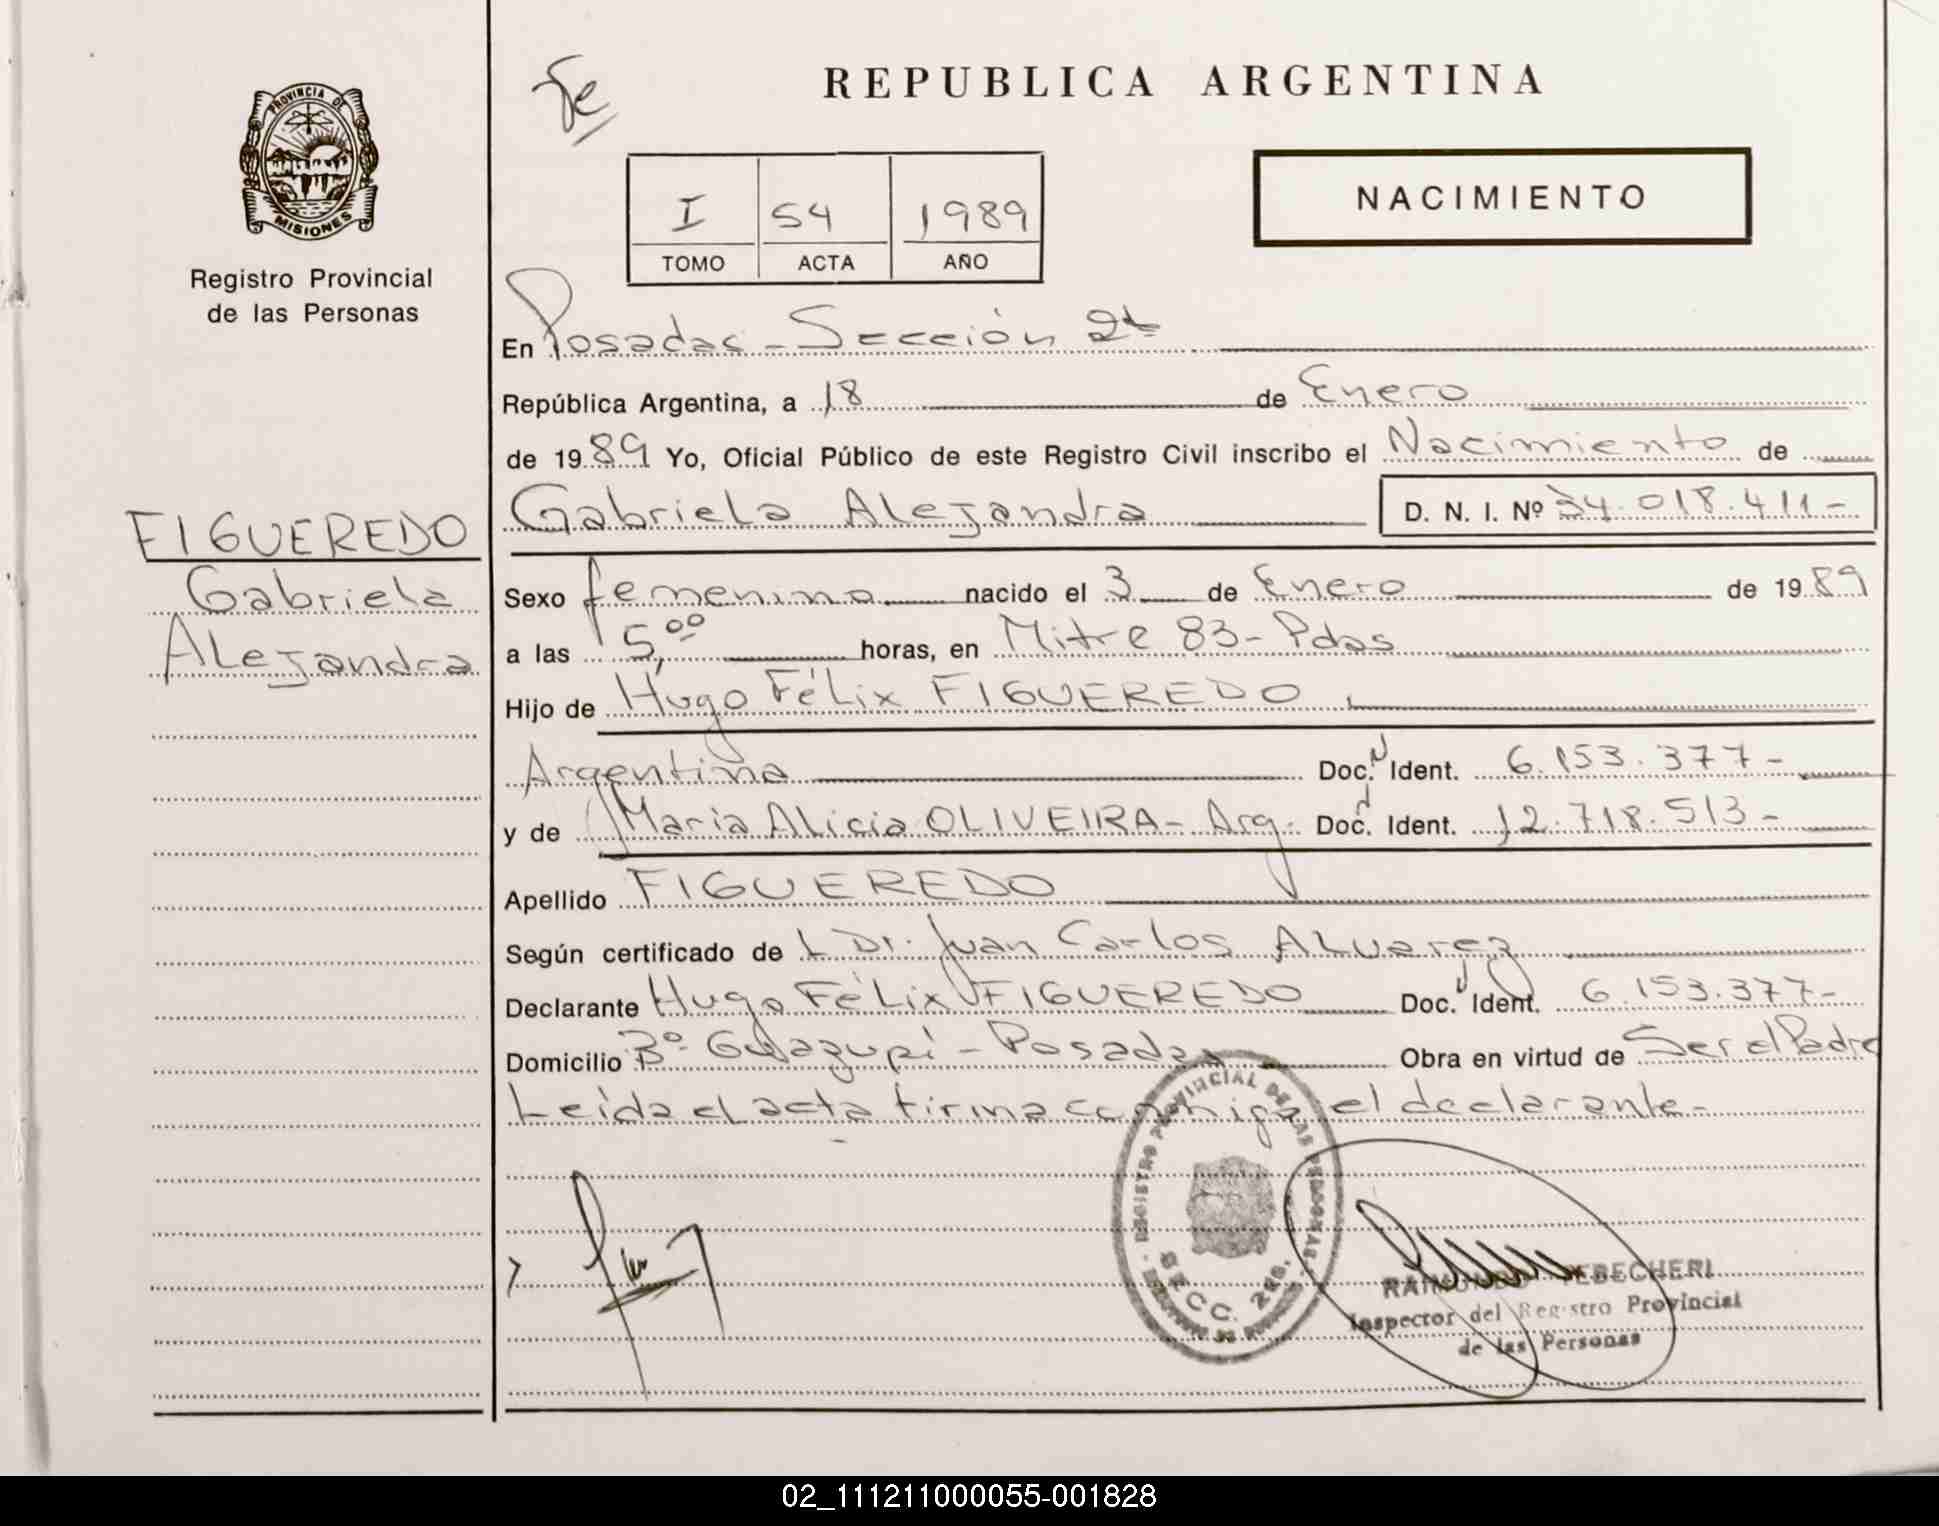 PROVINCIA DE
MISIONES
Registro Provincial
de las Personas
FIGUEREDO
Gabriela
Alejandra
REPUBLICA ARGENTINA
NACIMIENTO
I 54 1989
TOMO ACTA AÑO
En Posadas - Sección 2ª
República Argentina, a 18 de Enero
de 1989 Yo, Oficial Público de este Registro Civil inscribo el Nacimiento de
Gabriela Alejandra D. N. I. Nº 34.018.411-
Sexo femenino nacido el 3 de Enero de 1989
a las 5,00 horas, en Mitre 83 - Pdas
Hijo de Hugo Félix FIGUEREDO
Argentina Doc. Ident. 6.153.377-
y de María Alicia OLIVEIRA - Arg. Doc. Ident. 12.718.513-
Apellido FIGUEREDO
Según certificado de L Dr. Juan Carlos Alvarez
Declarante Hugo Félix FIGUEREDO Doc. Ident. 6.153.377-
Domicilio Bº Guazupí - Posadas Obra en virtud de Ser el Padre
Leída el acta firma conmigo el declarante-
REGISTRO PROVINCIAL DE LAS PERSONAS
SECC. 2da.
RAIMUNDO
Inspector del Registro Provincial
de las Personas
02_111211000055-001828